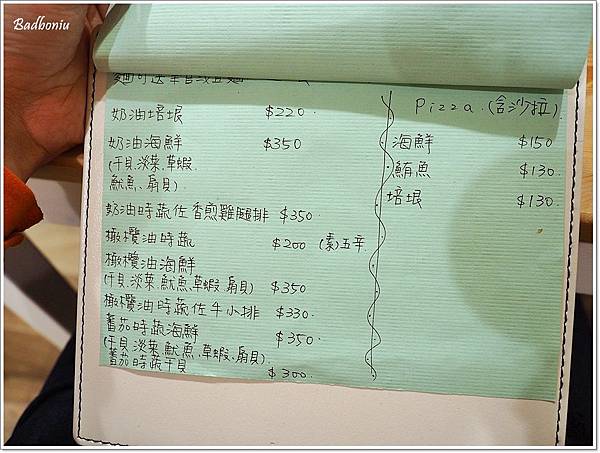 Badboniu
麵可選筆管或直麵
奶油培垠 $220
奶油海鮮 $350
(干貝.淡菜.草蝦.
魷魚、扇貝).
奶油時蔬佐香煎雞腿排 $350.
橄欖油時蔬 $200 (素)五辛.
橄欖油海鮮
(干貝.淡菜.魷魚.草蝦.扇貝) $350
橄欖油時蔬佐牛小排 $330.
蕃茄時蔬海鮮 $350.
(干貝.淡菜.魷魚.草蝦.扇貝).
蕃茄時蔬干貝 $300.
Pizza.(含沙拉).
海鮮 $150
鮪魚 $130.
培垠 $130.